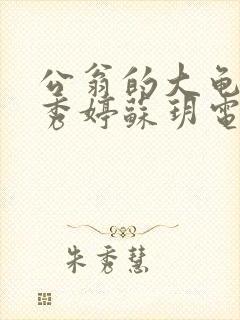 公翁的大龟
秀婷蘇玥電
朱秀慧